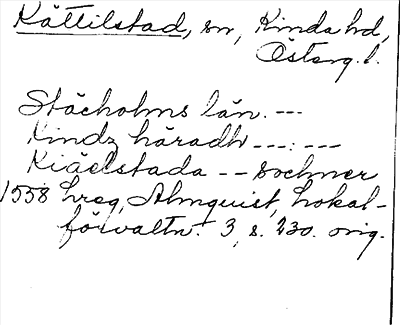 Kättilstad, sn, Kinda hd,
Österg. l.
Stächolms län. ---
Kindz häradh ---:---
Kiäelstada -- sochner
1558 hreg, Almquist, Lokal-
förvaltn. 3, s. 230. orig.